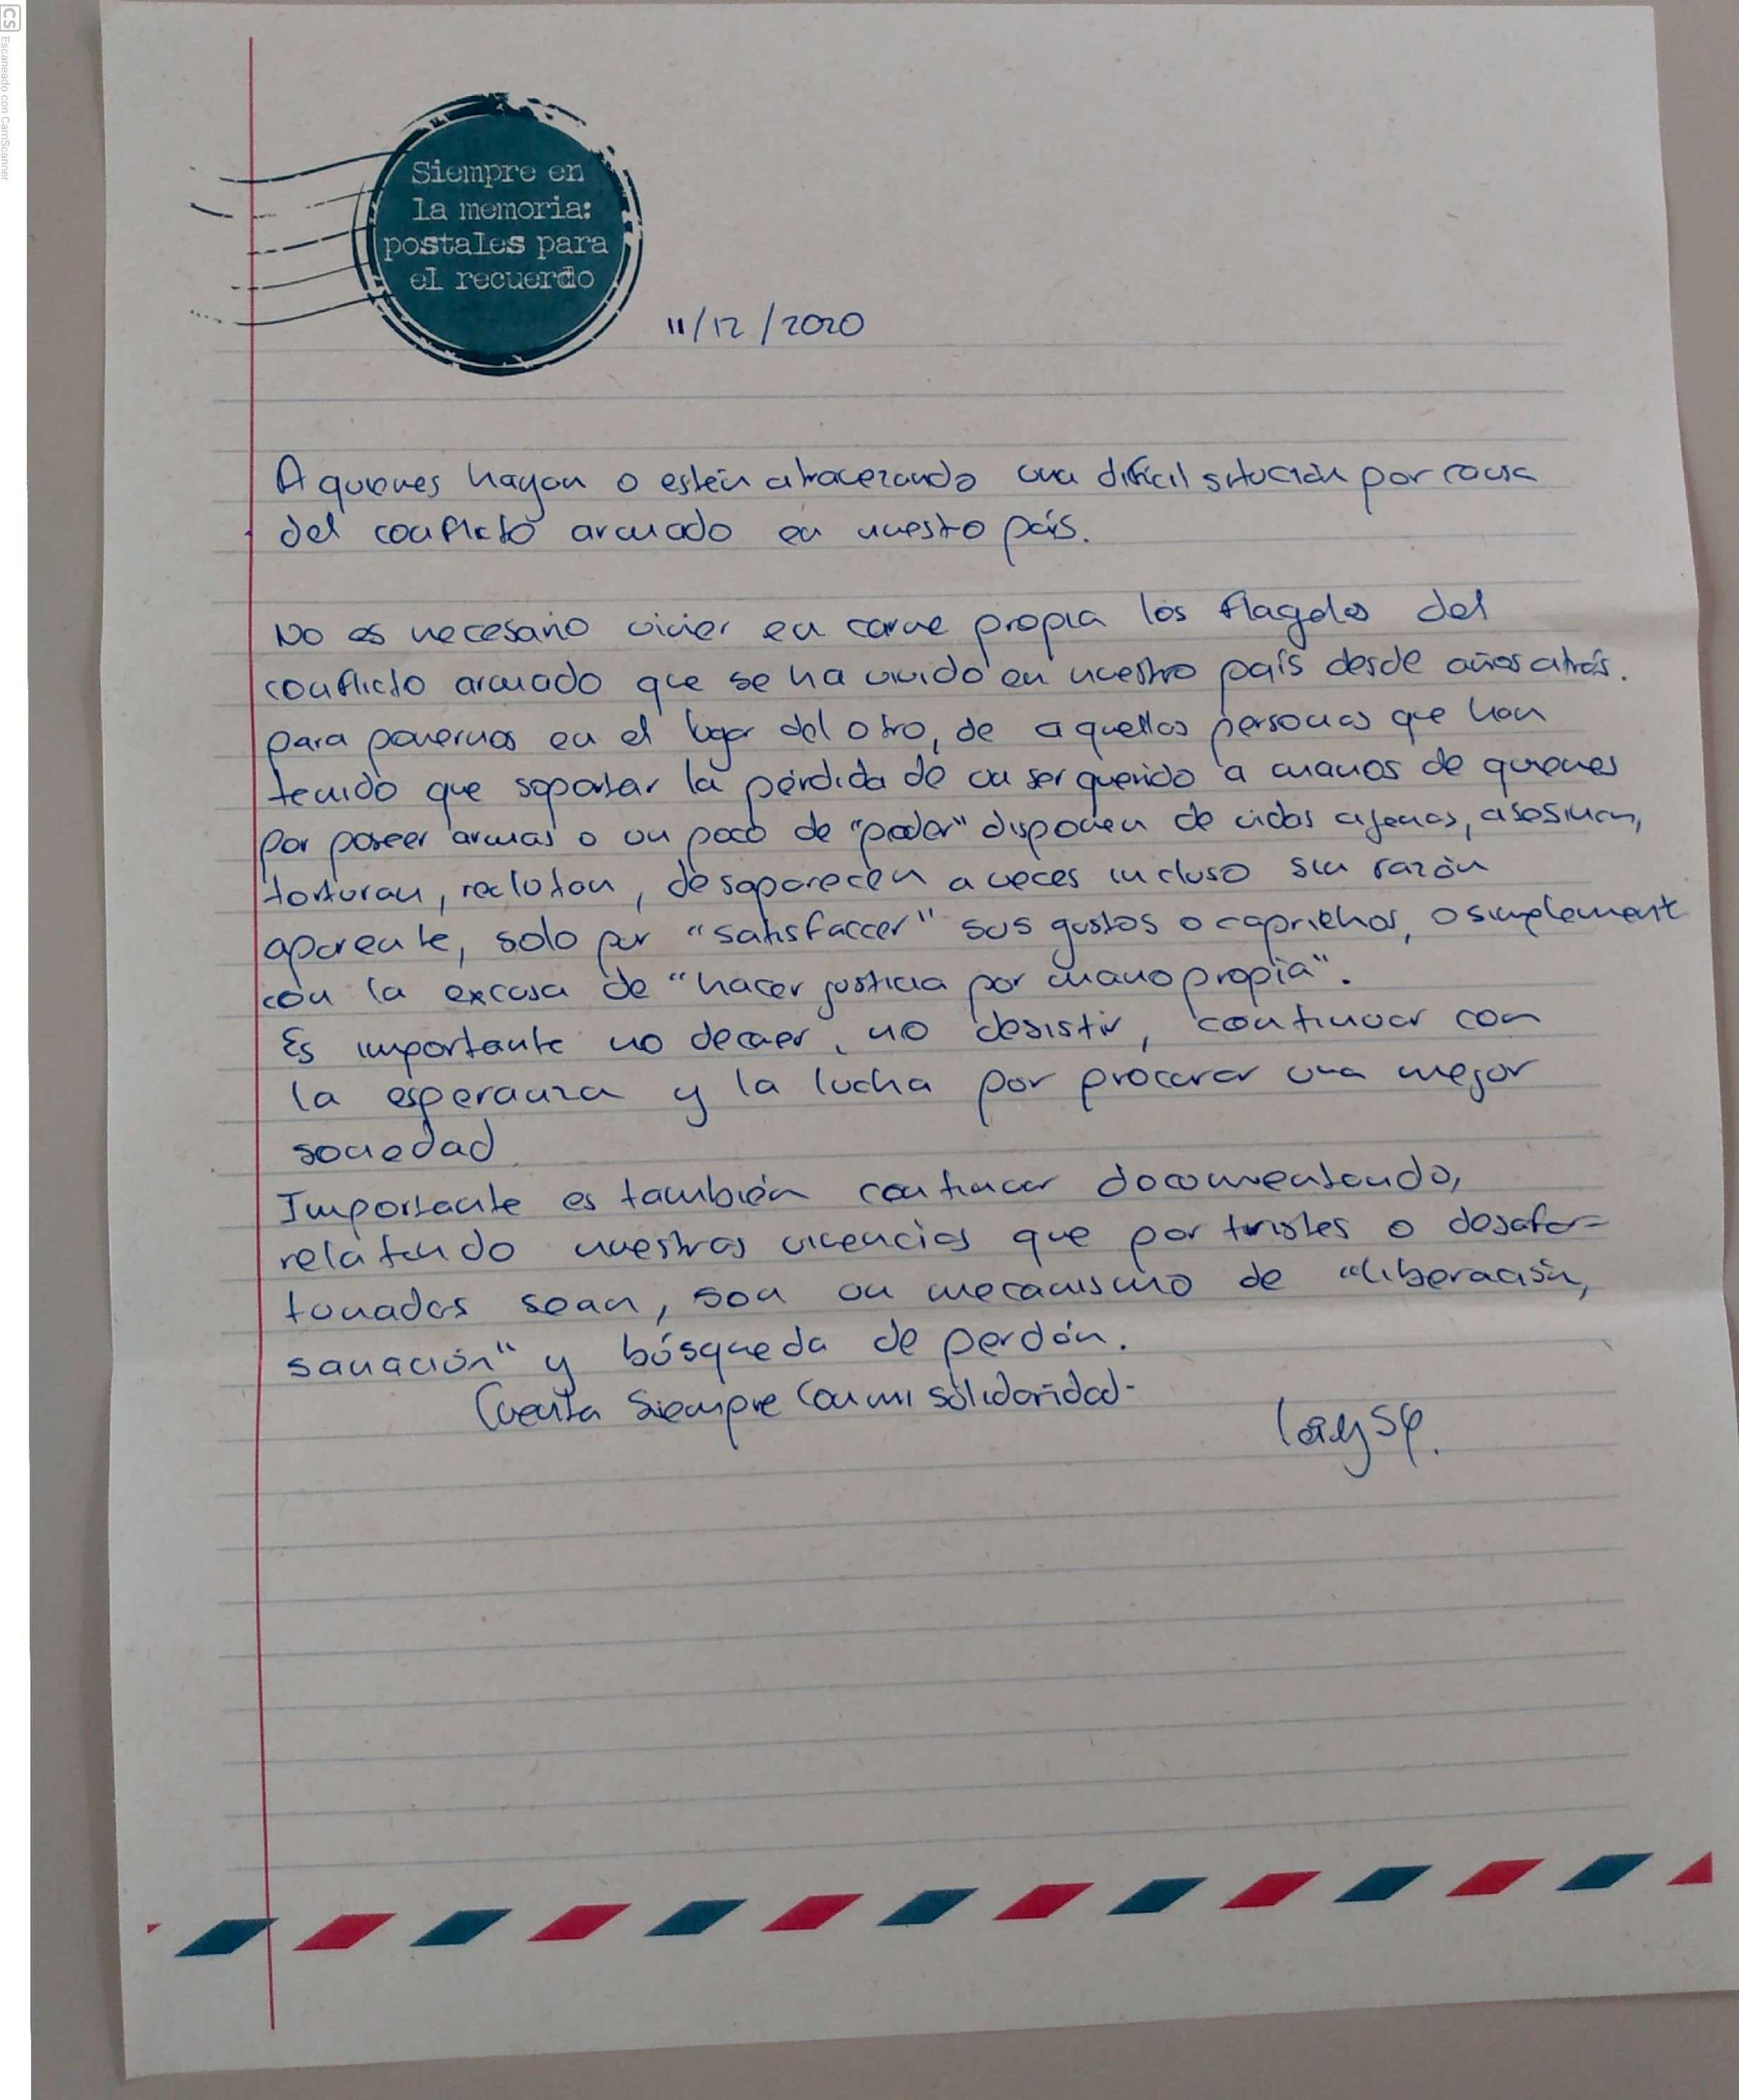 CS Escaneado con CamScanner
Siempre en
la memoria:
postales para
el recuerdo
11/12/2020
A quienes hayan o estén atravezando una difícil situción por causa
del conflicto armado en nuestro país.
No es necesario vivier en carne propia los flagelos del
conflicto armado que se ha vivido en nuestro país desde años atrás.
para ponernos en el lugar del otro, de aquellas personas que han
tenido que soportar la pérdida de un ser querido a manos de quienes
por poseer armas o un poco de "poder" disponen de vidas ajenas, asesinan,
torturan, reclutan, desaparecen a veces incluso sin razón
aparente, solo por "satisfaccer" sus gustos o caprichos, o simplement
con la excusa de "hacer justicia por mano propia".
Es importante no decaer, no desistir, continuar con
la esperanza y la lucha por procurar una mejor
sociedad
Importante es también continuar documentando,
relatando nuestras vivencias que por tristes o desafor-
tunadas sean, son un mecanismo de "liberación,
sanación" y búsqueda de perdón.
Cuenta Siempre Con mi solidaridad-